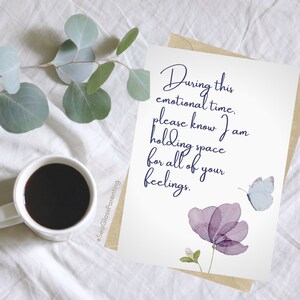 During this
emotional time,
please know I am
holding space
for all of your
feelings.